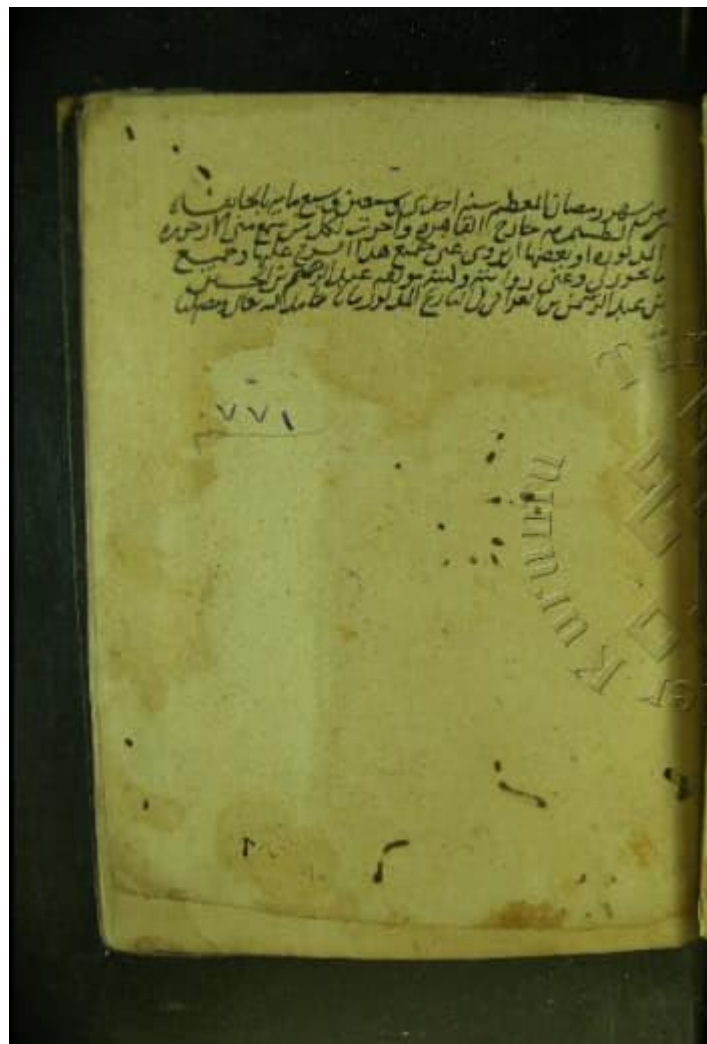 من شهر رمضان المعظم سنة احدى وسبعين وسبع مايه بالخانقاه
الطشتمريه خارج القاهره واجزت لكل من سمع مني الارجوزه
المذكوره او بعضها ان يروى عني جميع هذا الشرح عليها وجميع
ما يجوز لي وعني روايته وكتبه مولفه عبد الرحيم بن الحسين
بن عبد الرحمن بن العراقي في التاريخ المذكور حامدا لله
٧٧١
er Kurumu